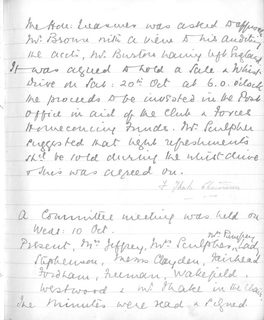 The Hon: Treasurer was asked to approach
Mr Brown with a view to his auditing
the accts, Mr Burton having left England
It was agreed to hold a Sale & Whist
Drive on Sat: 20th Oct at 6.0. o'clock
the proceeds to be invested in the Post
Office in aid of the Club & Forces
Homecoming Funds. Mr Sculpher
suggested that light refreshments
shd be sold during the whist drive
& this was agreed on.
A Committee meeting was held on
Weds: 10 Oct.
Present, Mrs Jeffrey, Mrs Sculpher, Lady
Stephenson, Messrs Clayden, Fairhead
Fordham, Freeman, Wakefield,
Westwood & Mr Thake in the Chair
The Minutes were read & signed